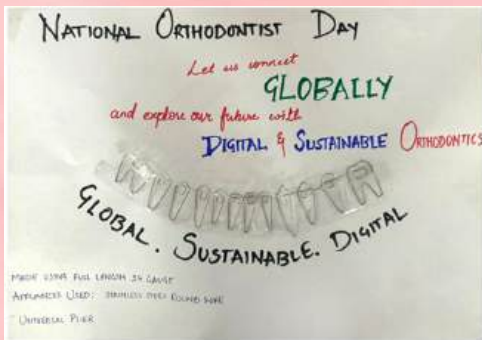 NATIONAL ORTHODONTIST DAY
Let us connect
GLOBALLY
and explore our future with
DIGITAL & SUSTAINABLE ORTHODONTICS
GLOBAL. SUSTAINABLE. DIGITAL
MADE USING FULL LENGTH 24 GAUGE
APPLIANCES USED: STAINLESS STEEL ROUND WIRE
UNIVERSAL PLIER